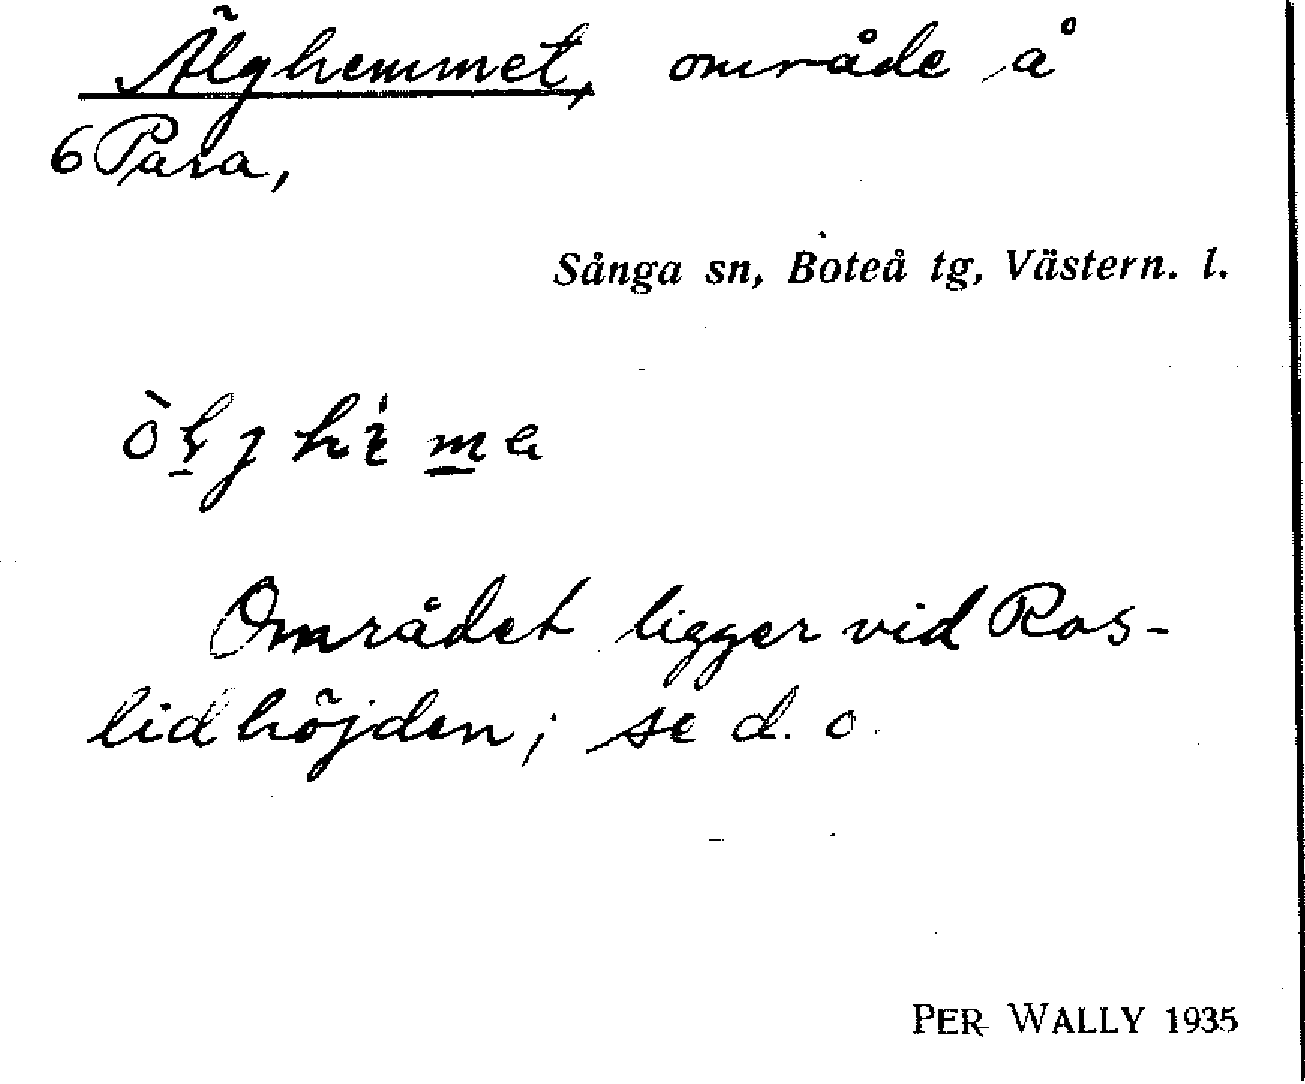 Älghemmet, område å
6 Para,
Sånga sn, Boteå tg, Västern. l.
Området ligger vid Ros-
lidhöjden; se d. o.
PER WALLY 1935